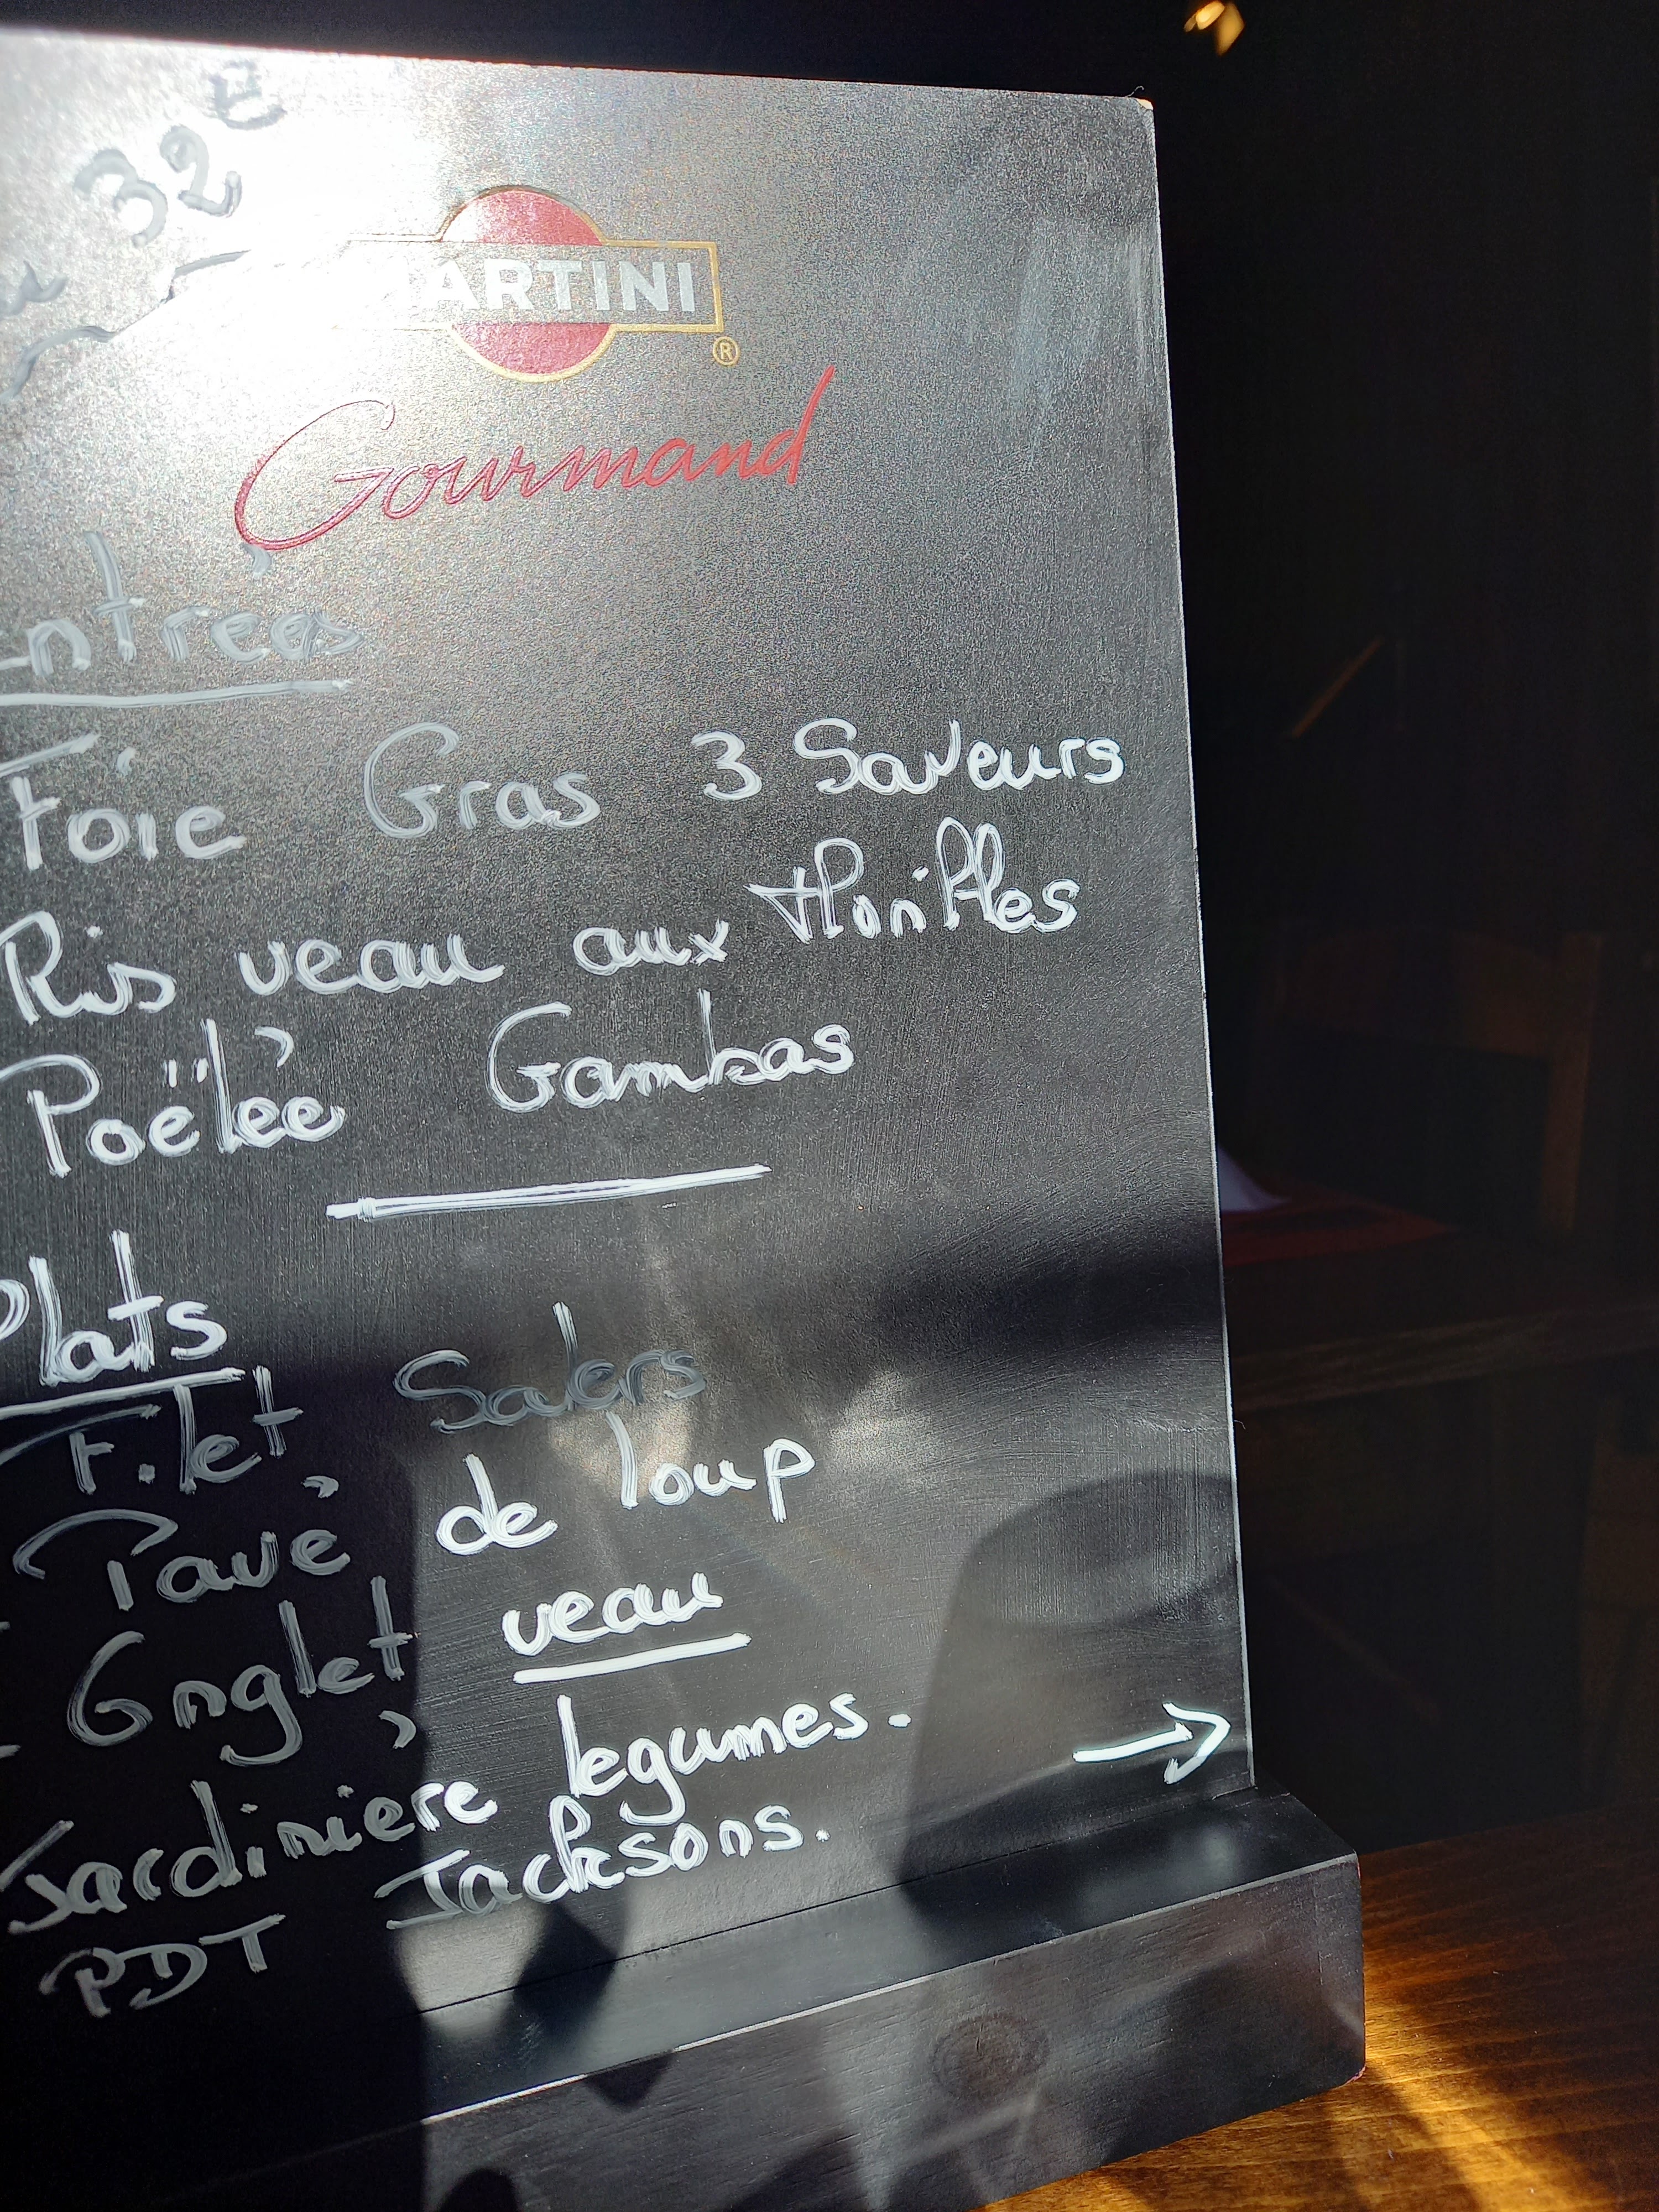 32€
MARTINI
®
Gourmand
Entrées
Foie Gras 3 Saveurs
Ris veau aux Morilles
Poëlée Gambas
Plats
Filet Salers
Pavé de loup
Onglet veau
Jardinière légumes.
PDT Jacksons.
→